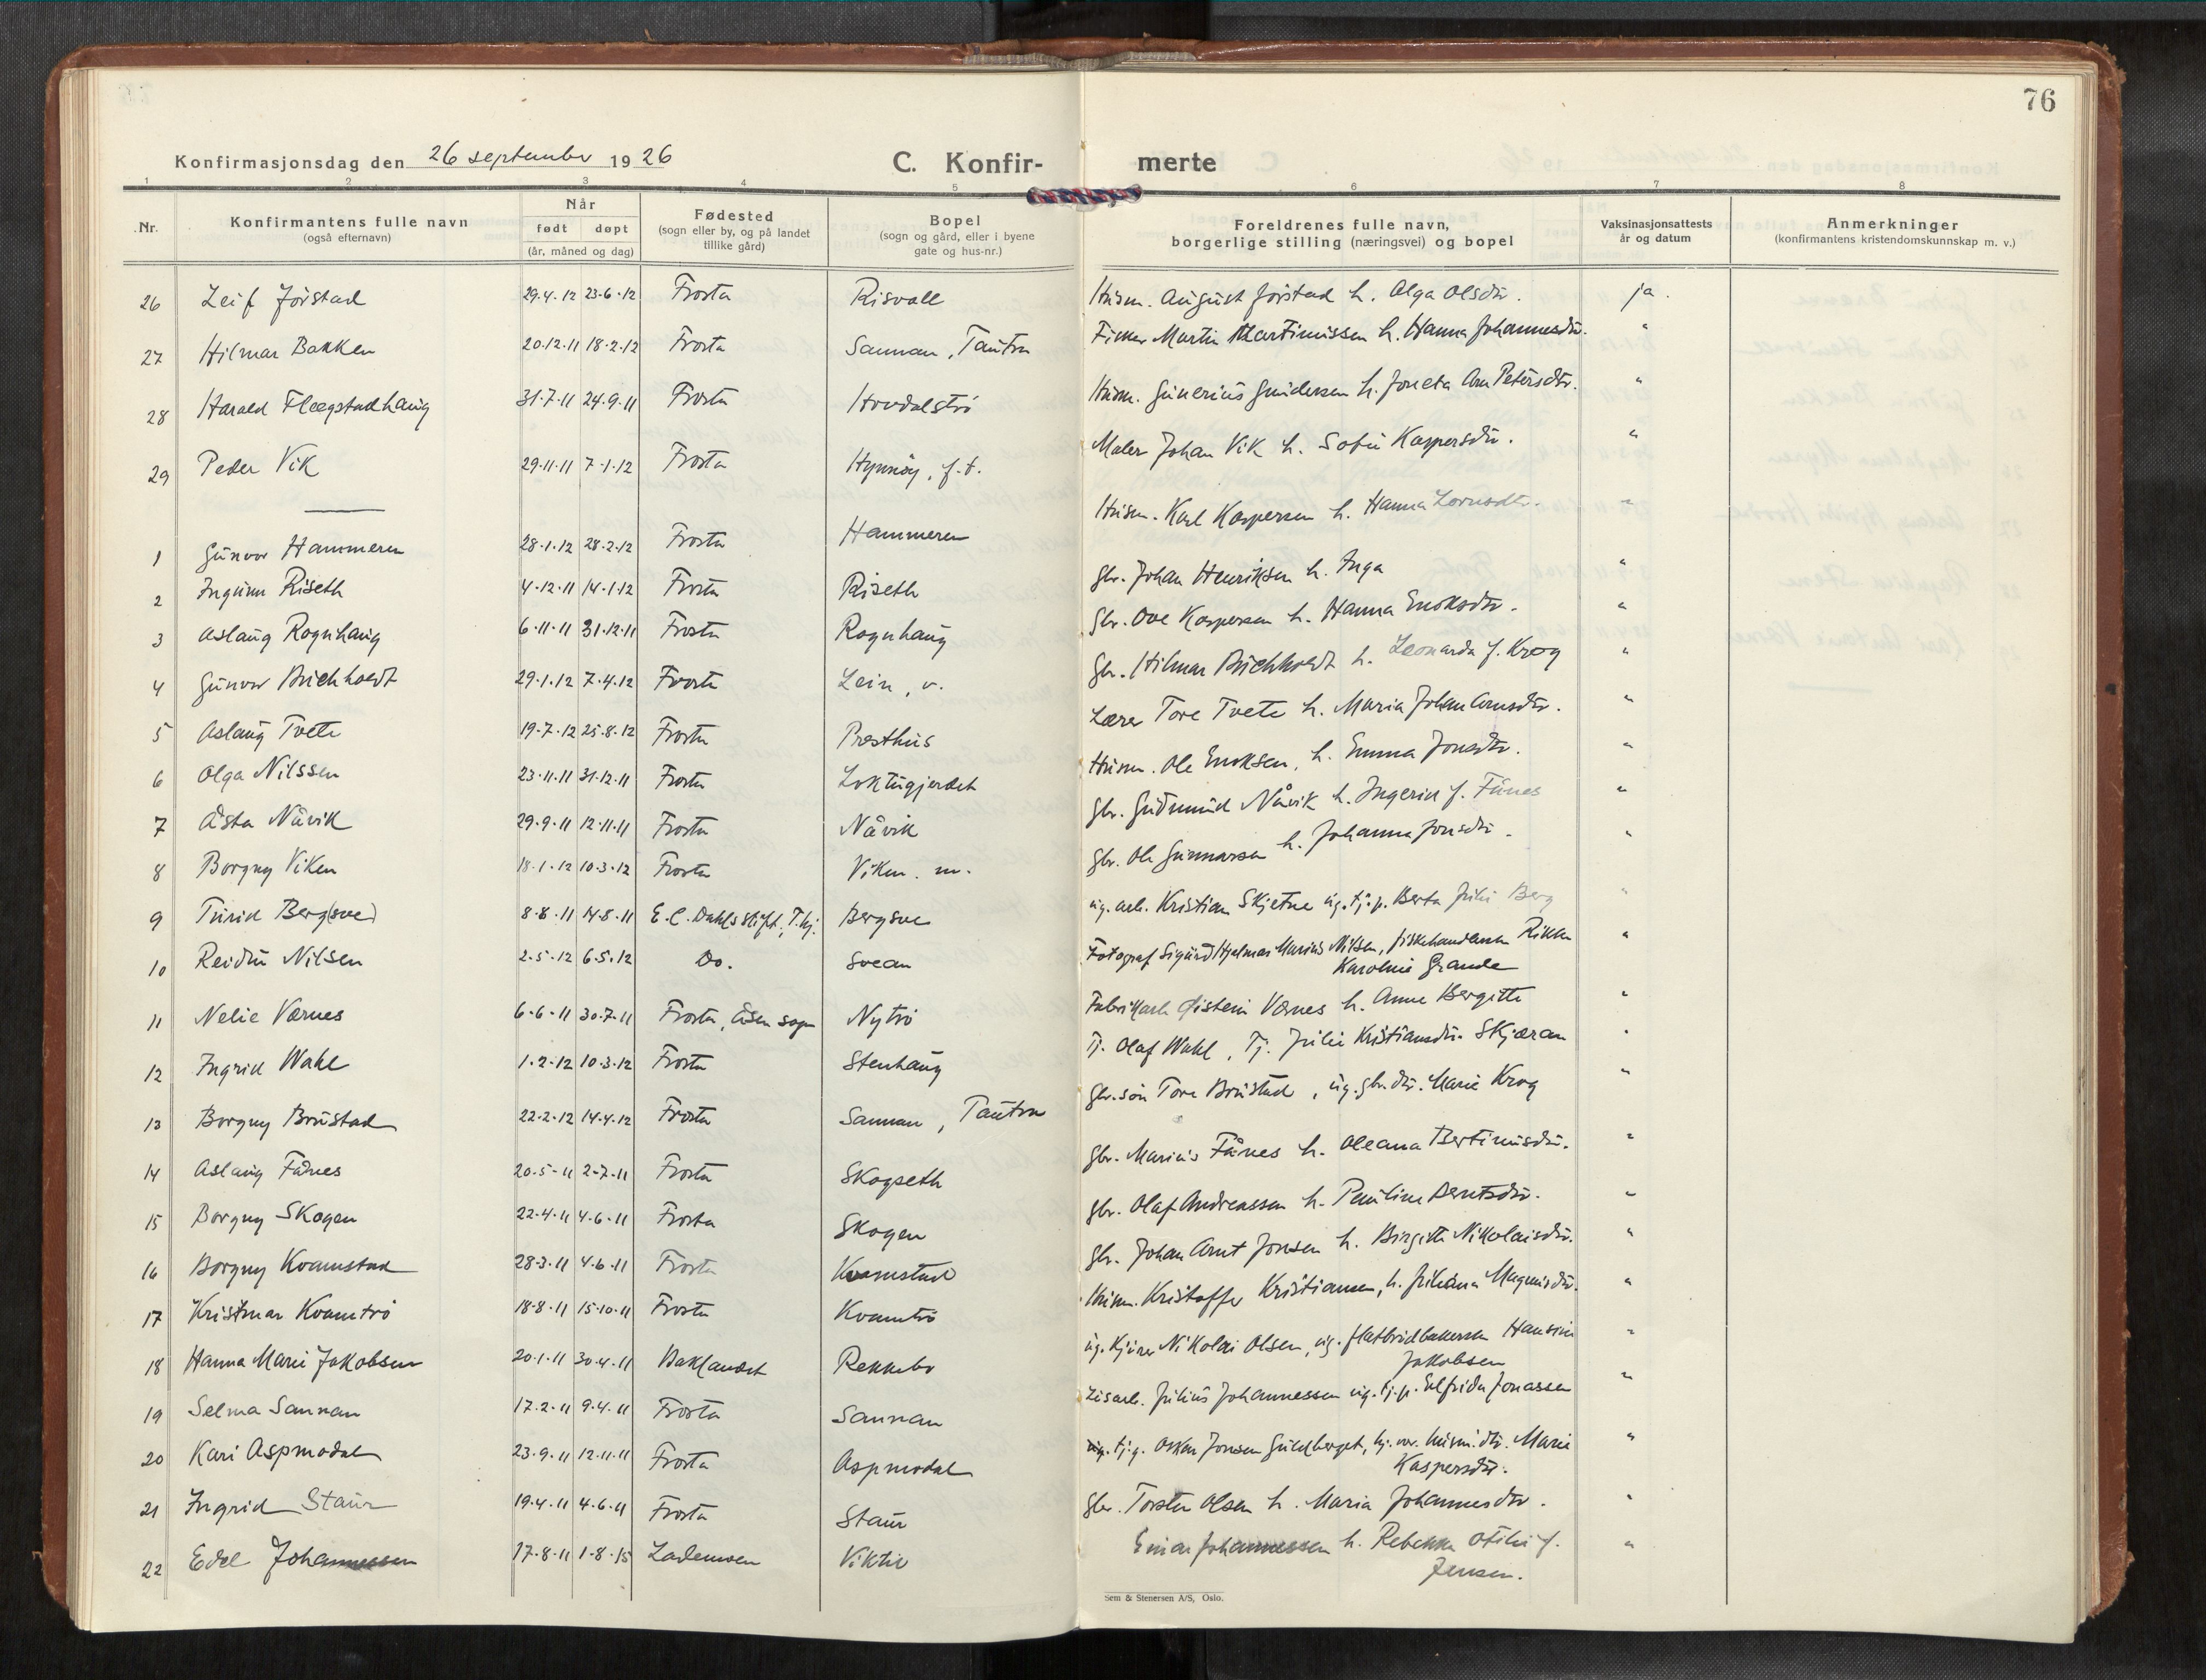 76
Konfirmasjonsdag den 26 september 1926
C. Konfir-
merte
1 2 3 4 5 6 7 8
Nr.
Konfirmantens fulle navn
(også efternavn)
Når
født døpt
(år, måned og dag)
Fødested
(sogn eller by, og på landet
tillike gård)
Bopel
(sogn og gård, eller i byene
gate og hus-nr.)
Foreldrenes fulle navn,
borgerlige stilling (næringsvei) og bopel
Vaksinasjonsattests
år og datum
Anmerkninger
(konfirmantens kristendomskunnskap m. v.)
26 Leif Jørstad 29.4.12 23.6.12 Frosta Risvall Husm. August Jørstad h. Olga Olsdtr. ja.
27 Hilmar Bakken 20.12.11 18.2.12 Frosta Sannan, Tautra Fisker Martin Martinussen h. Hanna Johannesdtr. "
28 Harald 31.7.11 24.9.11 Frosta Hovdalstrø Husm. Gunerius Gundersen h. Petersdtr. "
29 Peder Vik 29.11.11 7.1.12 Frosta f.t. Maler Johan Vik h. Sofie Kaspersdtr. "
1 Gunvor Hammeren 28.1.12 28.2.12 Frosta Hammeren Husm. Karl Kaspersen h. Hanna "
2 Ingunn Riseth 4.12.11 14.1.12 Frosta Riseth Gbr. Johan Henriksen h. Inga "
3 Aslaug Rognhaug 6.11.11 31.12.11 Frosta Rognhaug Gbr. Ove Kaspersen h. Hanna Enoksdtr. "
4 Gunvor Buchholdt 29.1.12 7.4.12 Frosta Lein, v. Gbr. Hilmar Buchholdt h. Leonarda f. Krog "
5 Aslaug Tvete 19.7.12 25.8.12 Frosta Presthus Lærer Tore Tvete h. Maria Johan Arnsdtr. "
6 Olga Nilssen 23.11.11 31.12.11 Frosta Loktugjerdet Husm. Ole Enoksen, h. Emma Jonsdtr. "
7 Åsta Nåvik 29.9.11 12.11.11 Frosta Nåvik Gbr. Gudmund Nåvik h. Ingerid f. Fånes "
8 Borgny Viken 18.1.12 10.3.12 Frosta Viken. m. Gbr. Ole Gunnarsen h. Johanna Jonsdtr. "
9 Turid Berg(sve) 8.8.11 14.8.11 E. C. Dahls stift., T.hj. Bergsve ug. arb. Kristian Skjetne ug. tj.p. Berta Julie Berg "
10 Reidun Nilsen 2.5.12 6.5.12 Do. Svean Fotograf Sigurd Hjelmar Marius Nilsen, Rikka
Karoline Grande "
11 Nelie Værnes 6.6.11 30.7.11 Frosta, Åsen sogn Nytrø Fabrikarb. Øistein Værnes h. Anne Bergitte "
12 Ingrid Wahl 1.2.12 10.3.12 Frosta Stenhaug Tj. Olaf Wahl, Tj. Julie Kristiansdtr. Skjæran "
13 Borgny Brustad 22.2.12 14.4.12 Frosta Sannan, Tautra Gbr. søn Tore Brustad, ug. gbr. dtr. Marie Krog "
14 Aslaug Fånes 20.5.11 2.7.11 Frosta Skogseth Gbr. Marius Fånes h. Oleana Bertinusdtr. "
15 Borgny Skogen 22.4.11 4.6.11 Frosta Skogen Gbr. Olaf Andreassen h. Pauline Berntsdtr. "
16 Borgny Kvamstad 28.3.11 4.6.11 Frosta Kvamstad Gbr. Johan Arnt Jonsen h. Birgitte Nikolaisdtr. "
17 Kristmar Kvamtrø 18.8.11 15.10.11 Frosta Kvamtrø Husm. Kristoffer Kristiansen, h. Juliana Magnusdtr. "
18 Hanna Marie Jakobsen 20.1.11 30.4.11 Baklandet Rekkebo ug. Kjører Nikolai Olsen, ug. flatbrødbakerske Hansine
Jakobsen "
19 Selma Sannan 17.2.11 9.4.11 Frosta Sannan Julius Johannessen ug. tj.p. Elfrida Jonassen "
20 Kari Aspmodal 23.9.11 12.11.11 Frosta Aspmodal ug. tj.g. Oskar Jonsen Guldberget, husm. dtr. Marie
Kaspersdtr. "
21 Ingrid Staur 19.4.11 4.6.11 Frosta Staur Gbr. Torsten Olsen h. Maria Johannesdtr. "
22 Edel Johannessen 17.8.11 1.8.15 Lademoen Viktil Einar Johannessen h. Rebekka Otilie f.
Jensen. "
Sem & Stenersen A/S, Oslo.